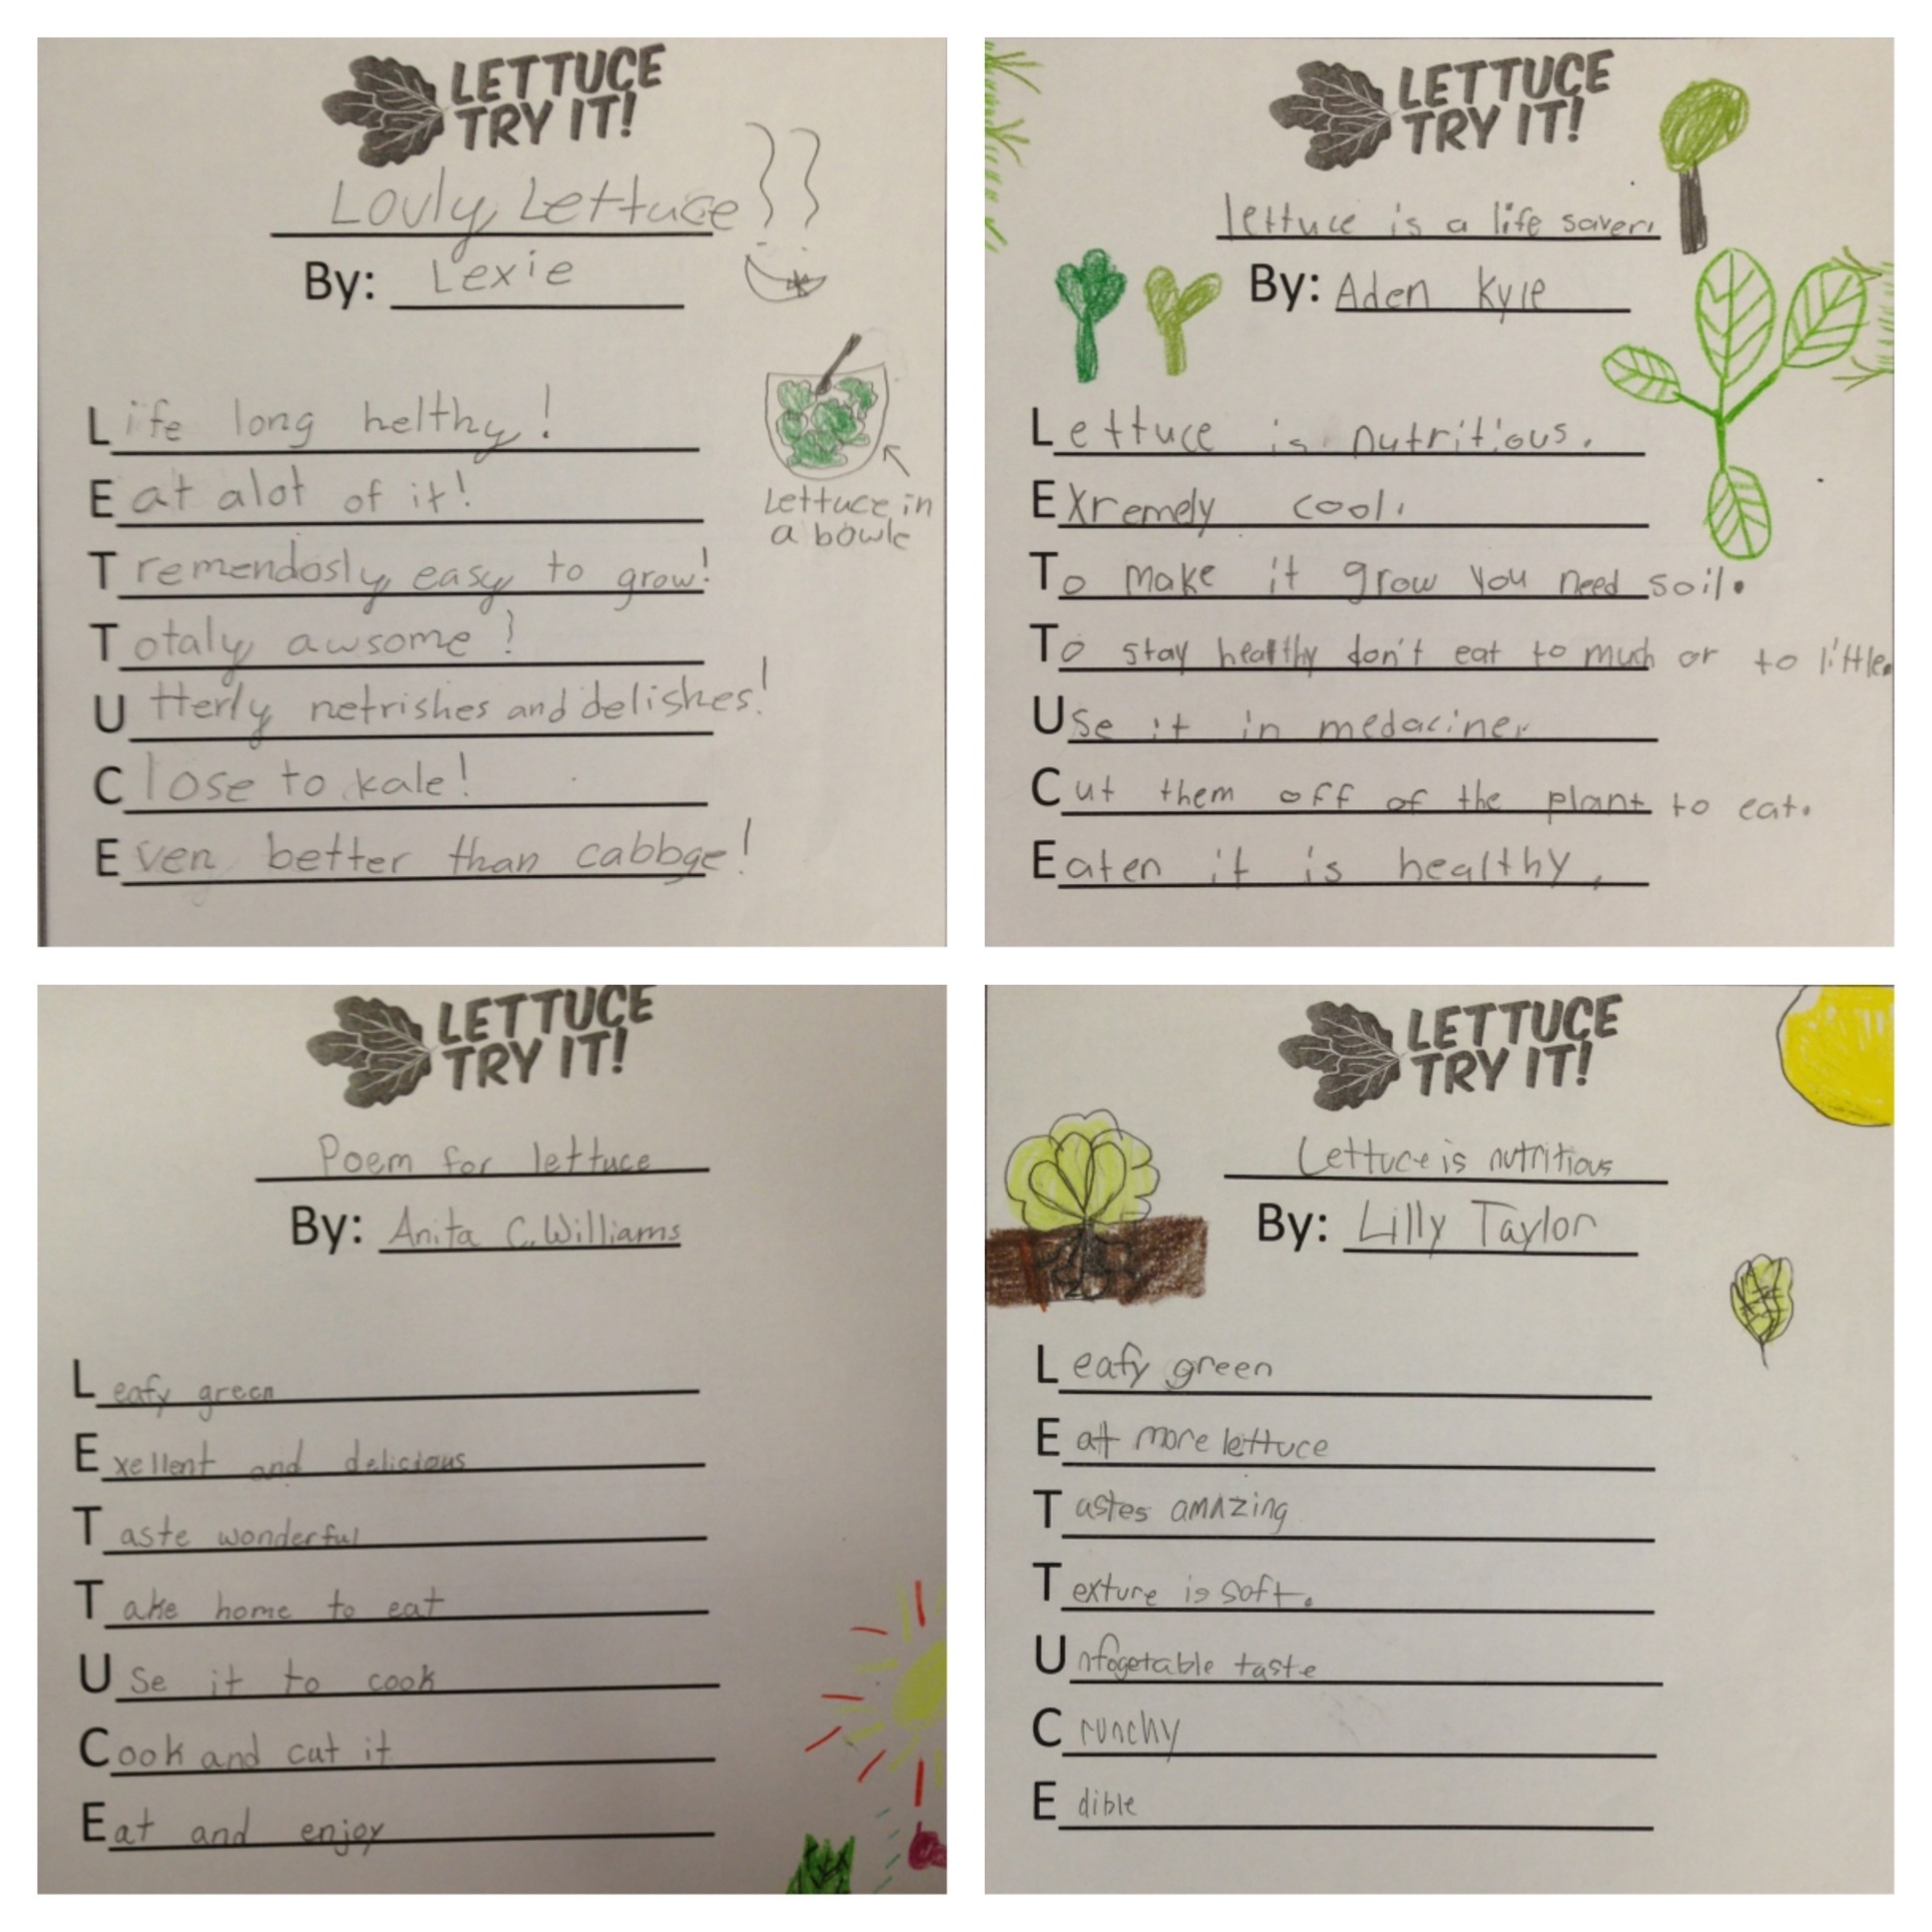 LETTUCE
TRY IT!
Louly Lettuce
By: Lexie
Life long helthy!
Eat alot of it!
Tremendosly easy to grow!
Totaly awsome!
Utterly netrishes and delishes!
Close to kale!
Even better than cabbge!
Lettuce in
a bowle
LETTUCE
TRY IT!
lettuce is a life saver.
By: Aden Kyle
Lettuce is nutritious.
Exremely cool.
To make it grow you need soil.
To stay healthy don't eat to much or to little.
Use it in medacine.
Cut them off of the plant to eat.
Eaten it is healthy.
LETTUCE
TRY IT!
Poem for lettuce
By: Anita C. Williams
Leafy green
Exellent and delicious
Taste wonderful
Take home to eat
Use it to cook
Cook and cut it
Eat and enjoy
LETTUCE
TRY IT!
Lettuce is nutritious
By: Lilly Taylor
Leafy green
Eat more lettuce
Tastes amazing
Texture is soft.
Unfogetable taste
Crunchy
Edible